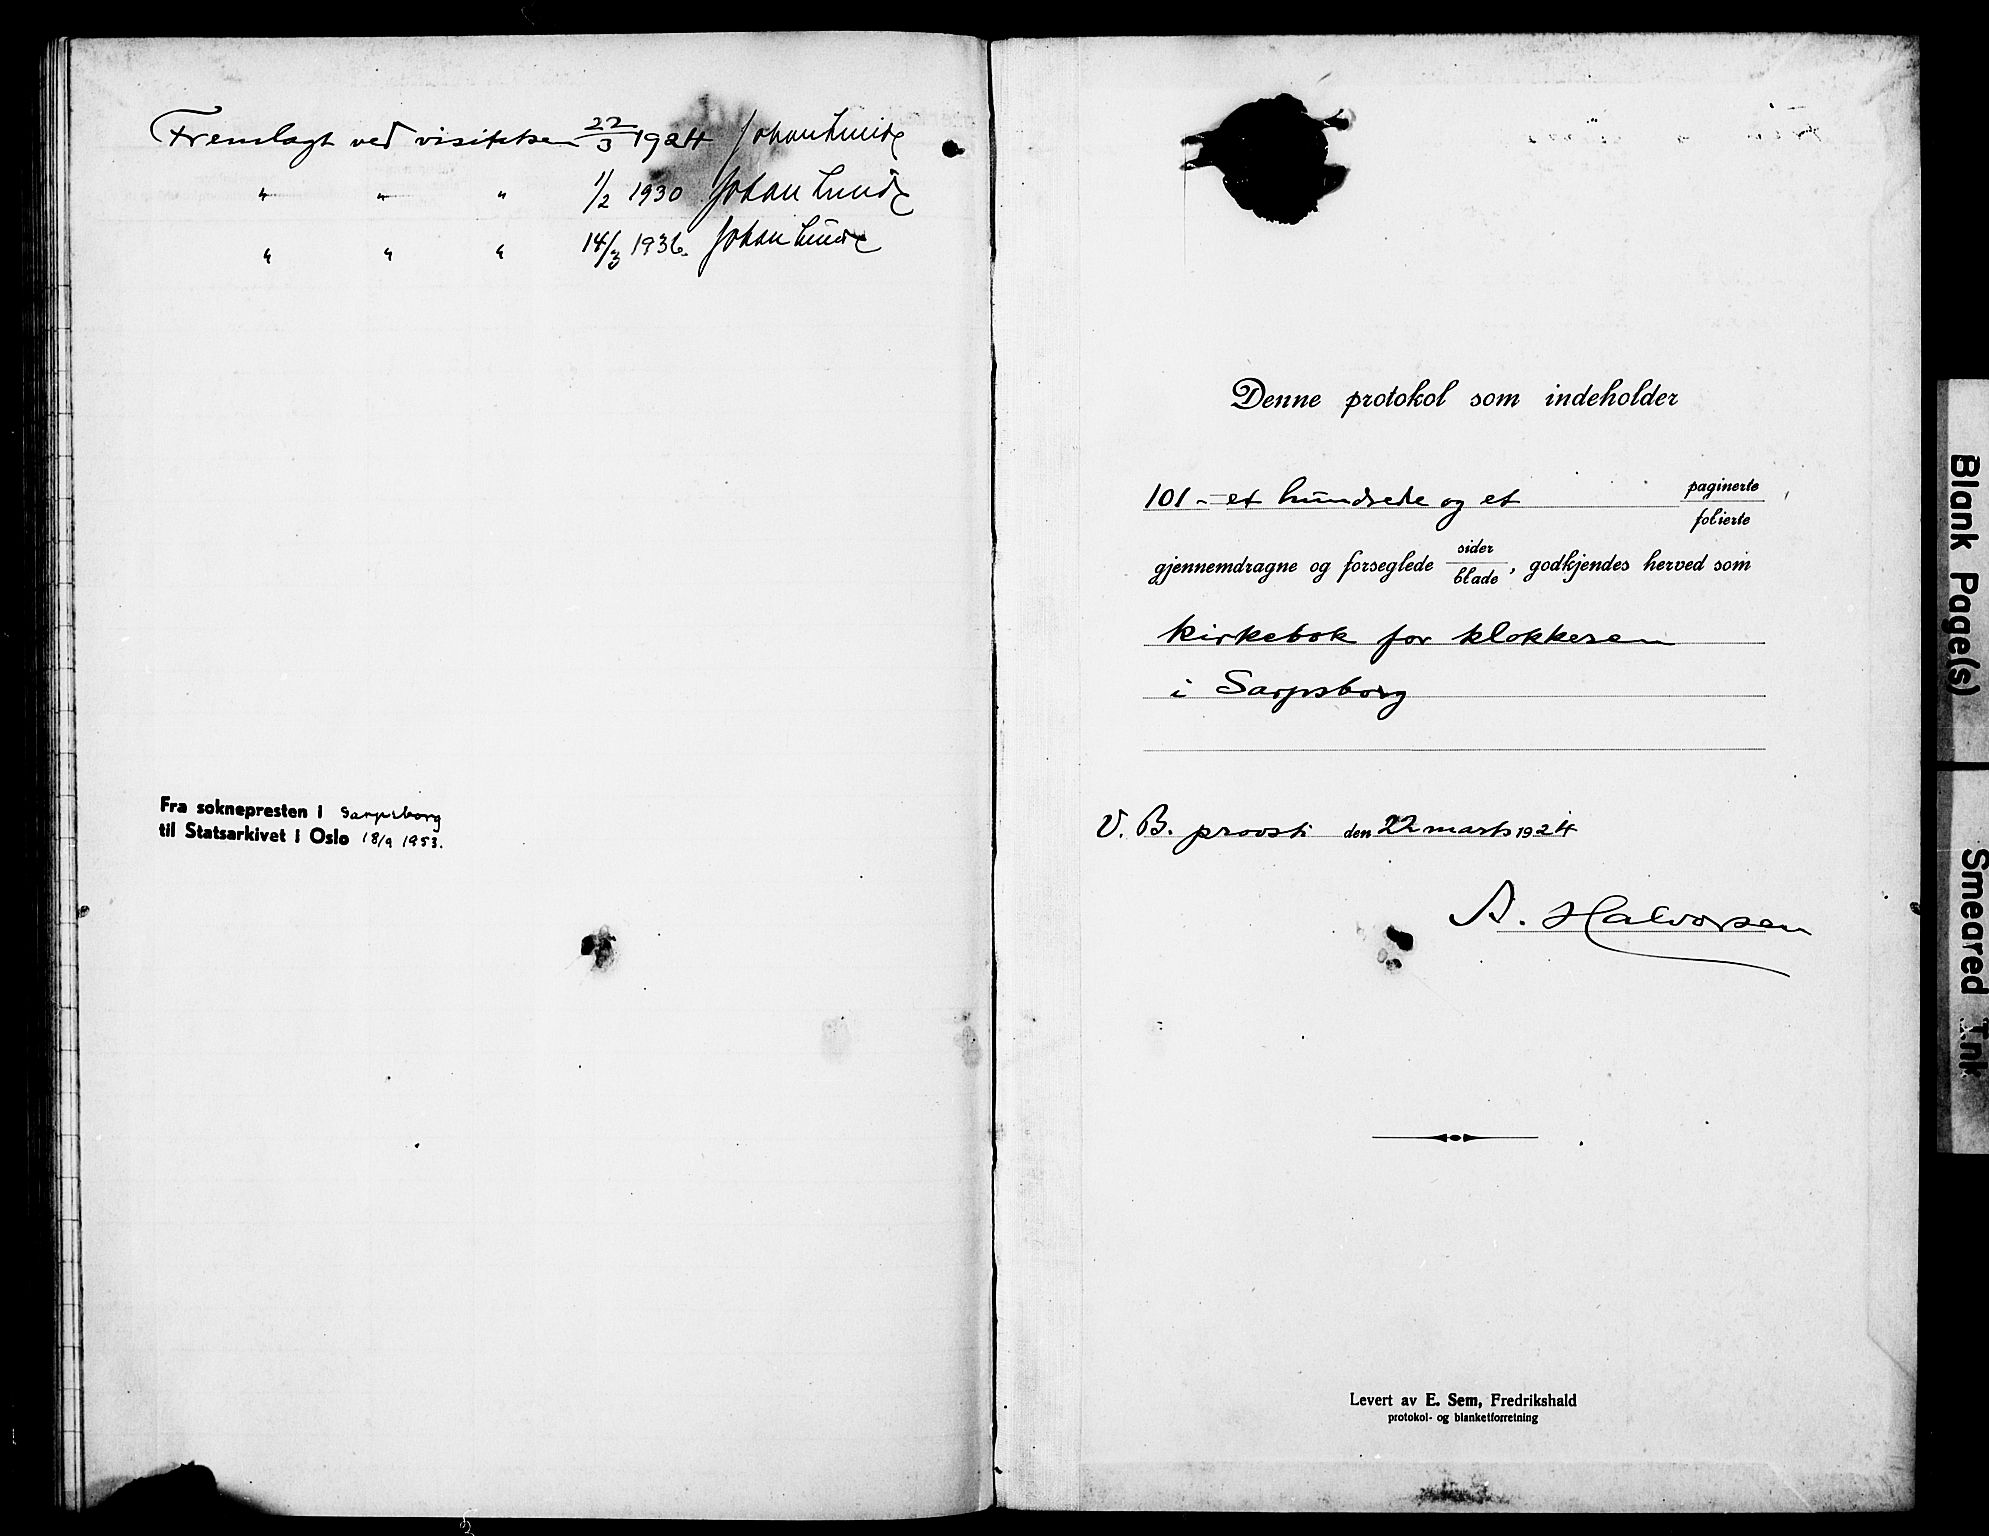 Fremlagt ved visitatsen 22/3 1924 Johan Lunde
" " " 1/2 1930 Johan Lunde
" " " 14/3 1936. Johan Lunde
Fra soknepresten i Sarpsborg
til Statsarkivet i Oslo 18/9 1953.
Denne protokol som indeholder
101 - et hundrede og et paginerte
folierte
gjennemdragne og forseglede sider/blade, godkjendes herved som
kirkebok for klokkeren
i Sarpsborg
V. B. proosti den 22 marts 1924
A. Halvorsen
Levert av E. Sem, Fredrikshald
protokol- og blanketforretning
Blank Page(s)
Smeared Ink